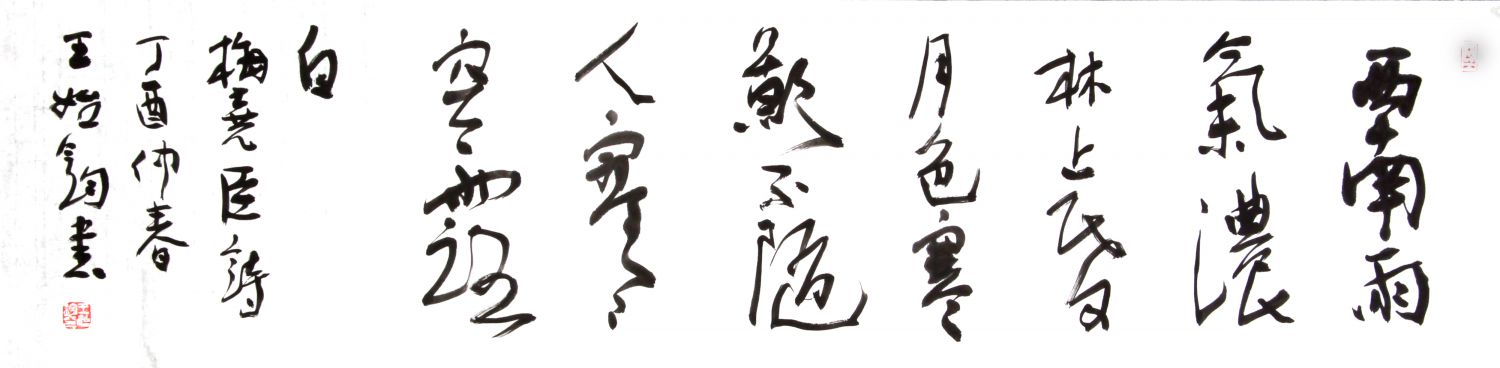 西南雨
氣濃
林上昏
月色寒
不隨
人寥寥
空露
白
梅堯臣詩
丁酉仲春
王始鈞書